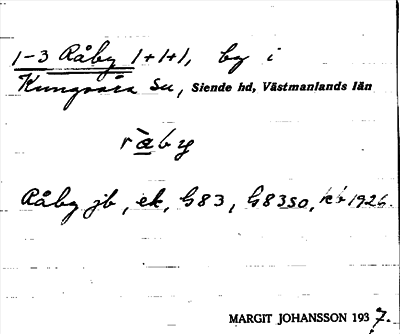 1-3 Råby 1+1+1, by i
Kungsåra Sn, Siende hd, Västmanlands län
ràby
Råby jb, ek, G83, G83SO, kb 1926.
MARGIT JOHANSSON 1937.